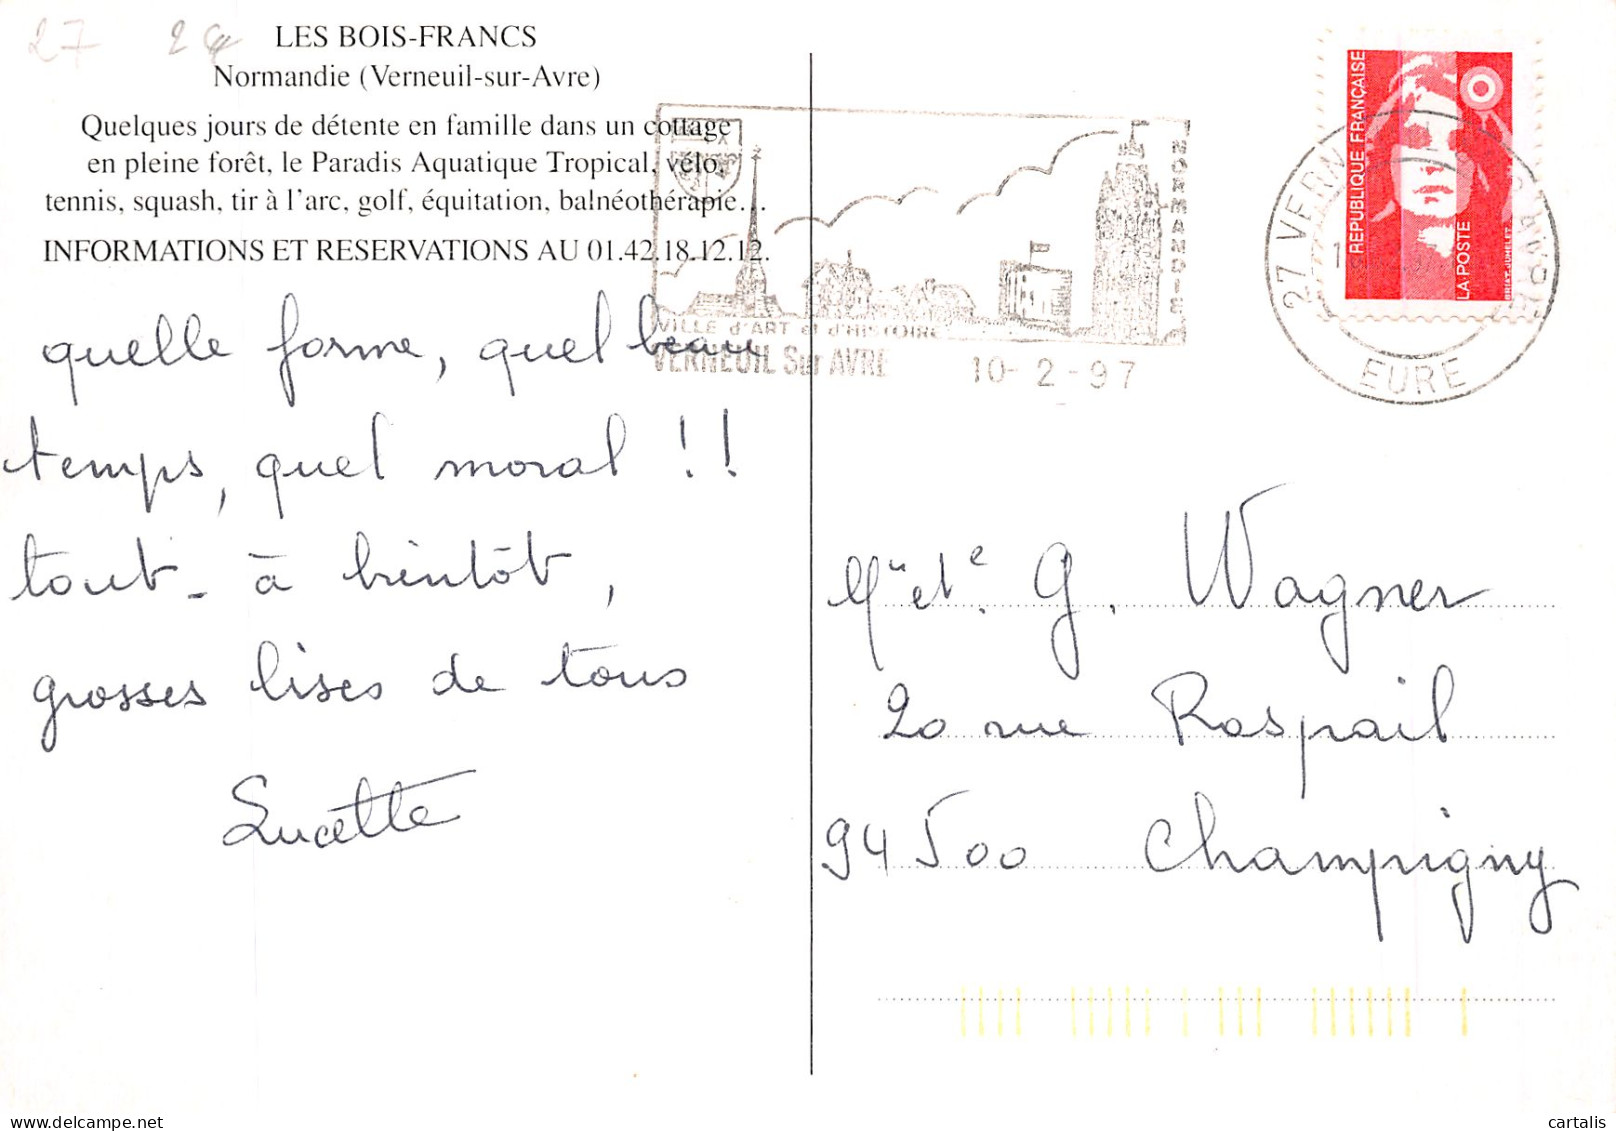 27 24
LES BOIS-FRANCS
Normandie (Verneuil-sur-Avre)
Quelques jours de détente en famille dans un cottage
en pleine forêt, le Paradis Aquatique Tropical, vélo,
tennis, squash, tir à l'arc, golf, équitation, balnéothérapie...
INFORMATIONS ET RESERVATIONS AU 01.42.18.12.12.
quelle forme, quel beau
temps, quel moral !!
tout-à bientôt,
grosses bises de tous
Lucette
NORMANDIE
VILLE d'ART et d'HISTOIRE
VERNEUIL Sur AVRE
10-2-97
27 VERN
EURE
REPUBLIQUE FRANÇAISE
LA POSTE
BRIAT-JUMELET
Mr et Me G. Wagner
20 rue Raspail
94500 Champigny
delcampe.net
cartalis